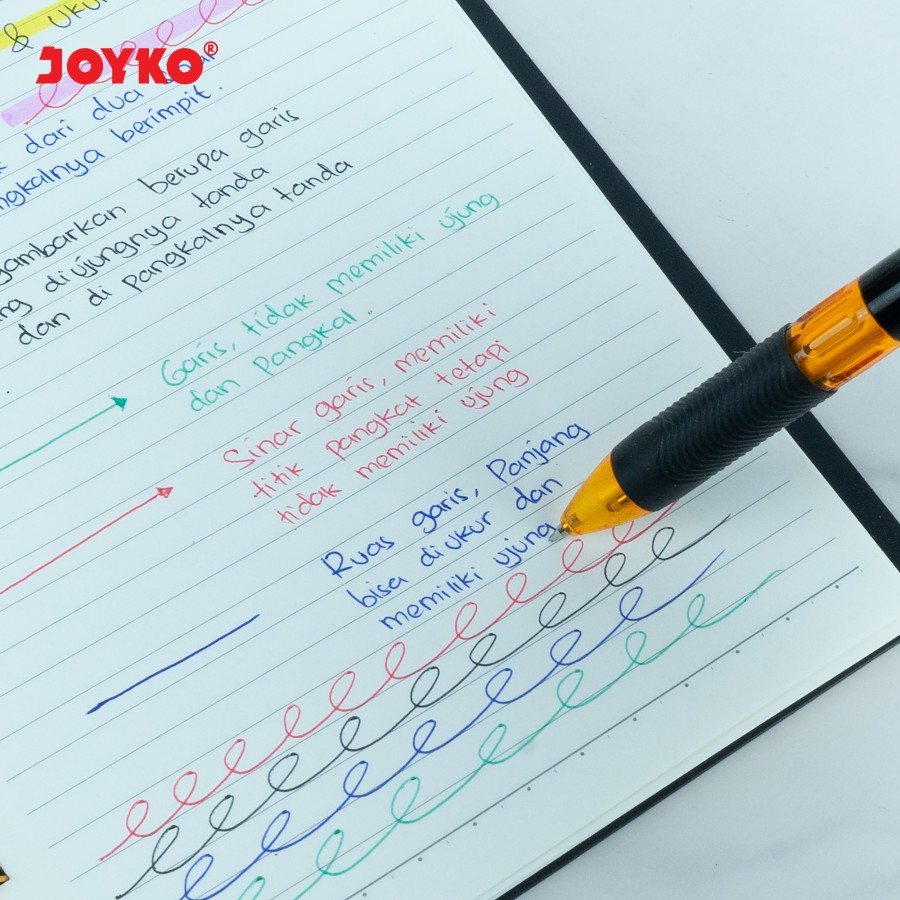 & Ukur
JOYKO®
dari dua sinar
berimpit.
gambarkan berupa garis
diujungnya tanda
dan di pangkalnya tanda
Garis, tidak memiliki ujung
dan pangkal.
Sinar garis, memiliki
titik pangkat tetapi
tidak memiliki ujung
Ruas garis, Panjang
bisa diukur dan
memiliki ujung